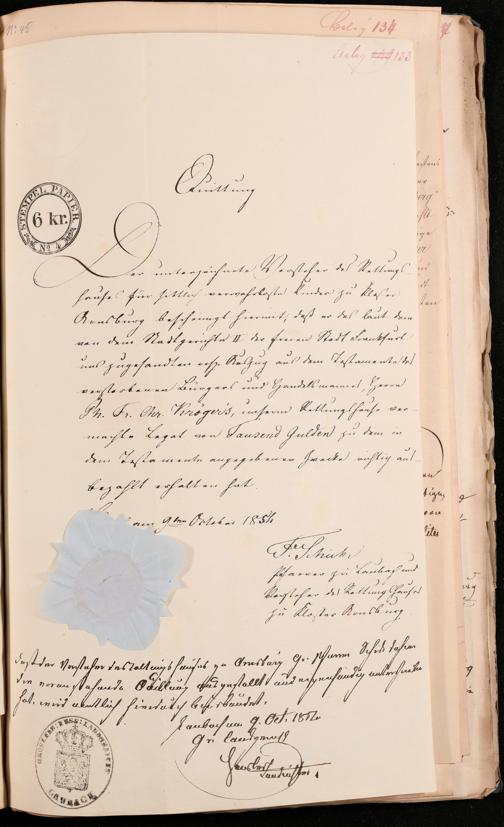 No 45
Beleg 134
Beleg 133
Quittung
STEMPEL PAPIER
6 kr.
No 4
Der unterzeichnete Vorsteher des Rettungs
hauses für sittlich verwahrloste Kinder zu Kloster
Arnsburg bescheinigt hiermit, daß er das laut dem
von dem Stadtgerichte II der freien Stadt Frankfurt
uns zugesandten Auszug aus dem Testamente des
verstorbenen Bürgers und Handelsmannes, Herrn
Ph. Fr. Chr. Kröger's, unserm Rettungshause ver-
machte Legat von Tausend Gulden zu dem in
dem Testamente angegebenen Zwecke richtig aus-
bezahlt erhalten hat.
am 9ten October 1854
Pfarrer zu Laubach und
Vorsteher des Rettungshauses
zu Kloster Arnsburg.
Daß der Vorsteher des Rettungshauses zu Arnsburg Hr. Pfarrer
die voranstehende Quittung ausgestellt und eigenhändig unterschrieben
hat, wird amtlich hierdurch beglaubiget.
Laubach am 9. Oct. 1854
Gr. Landgericht
Landrichter
GROSHERZ. HESS. LANDGERICHT
LAUBACH